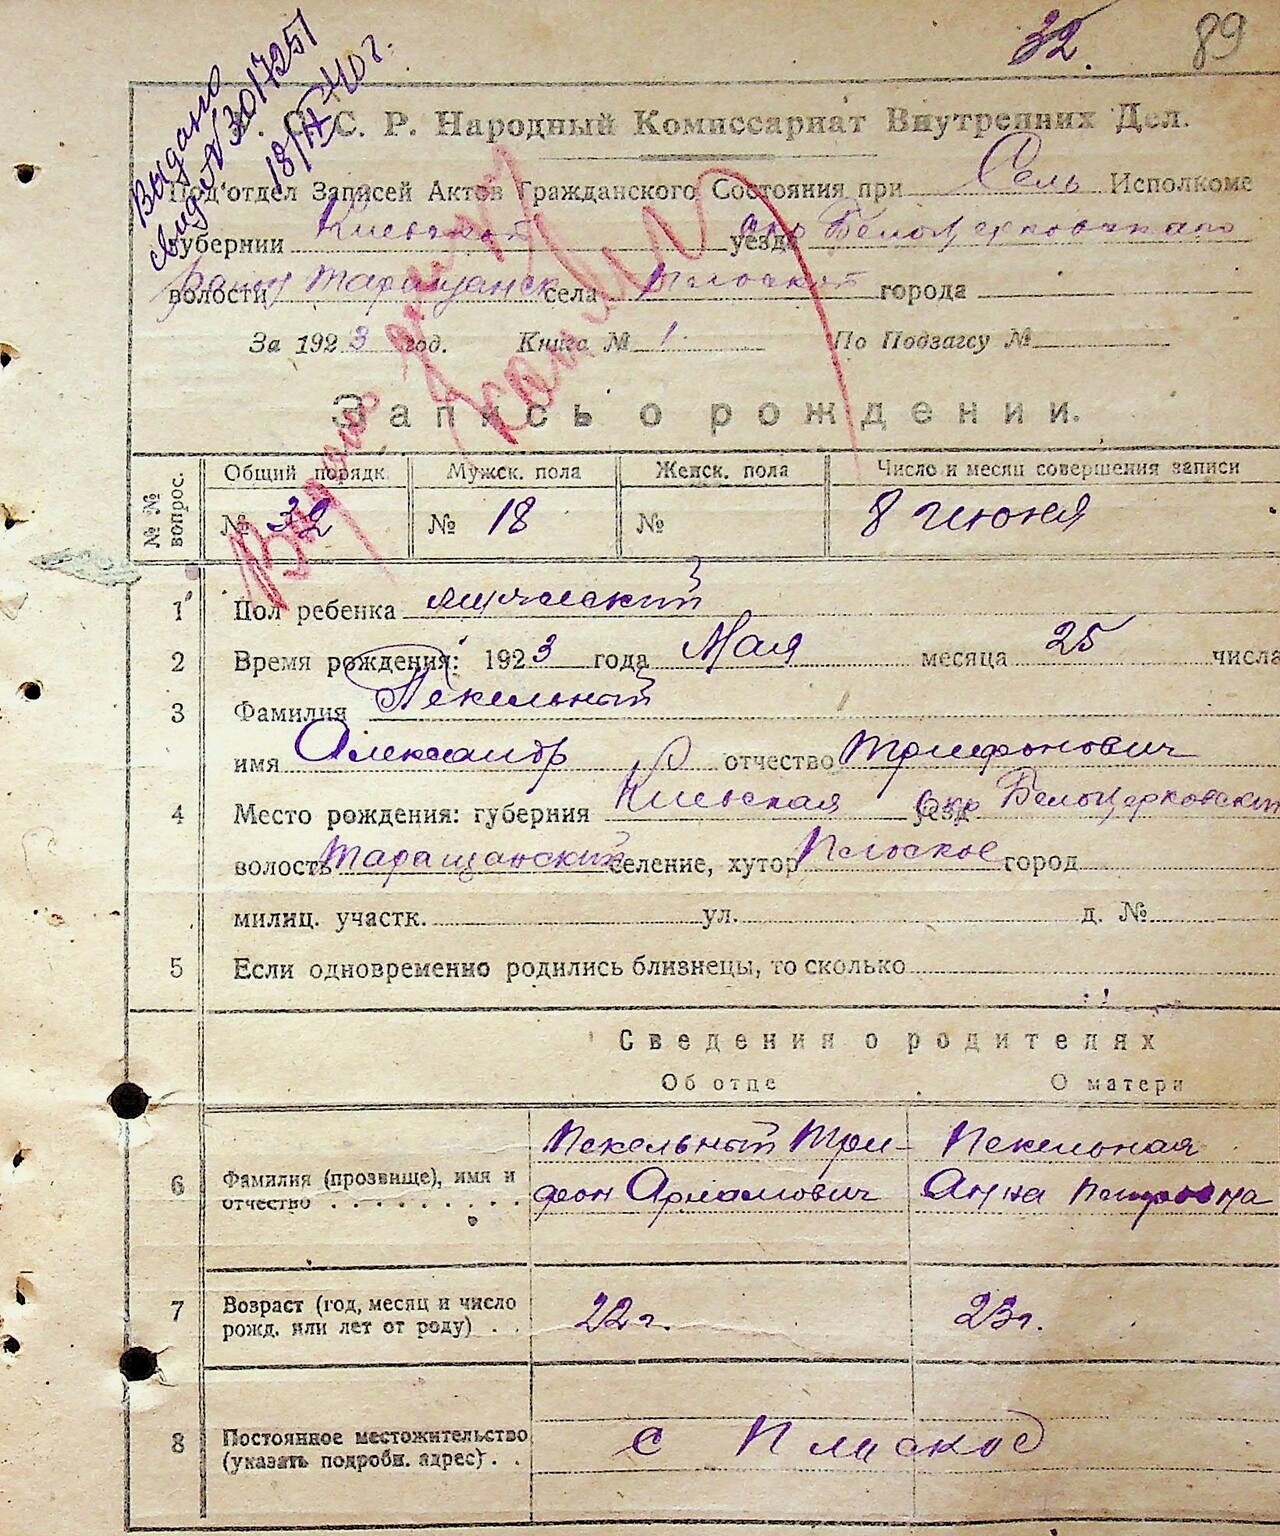 32. 89
Выдано
свид. № 3017251
18/IX 40 г.
С. Р. Народный Комиссариат Внутренних Дел.
Под'отдел Записей Актов Гражданского Состояния при Сель Исполкоме
губернии Киевской уезда окр Белоцерковчкаго
волости Таращанск села Плоской города
За 1923 год. Книга № 1 По Подзагсу №
Запись о рождении.
№ № вопрос. Общий порядк. Мужск. пола Женск. пола Число и месяц совершения записи
№ 32 № 18 № 8 июня
1 Пол ребенка мужеский
2 Время рождения: 1923 года Мая месяца 25 числа
3 Фамилия Пекельный
имя Александр отчество Трифонович
4 Место рождения: губерния Киевская уезд окр Белоцерковский
волость Таращанский селение, хутор Плоское город
милиц. участк. ул. д. №
5 Если одновременно родились близнецы, то сколько
Сведения о родителях
Об отце О матери
Пекельный Три- Пекельная
6 Фамилия (прозвище), имя и
отчество . . . . . . . . . фон Анна Петровна
7 Возраст (год, месяц и число
рожд. или лет от роду) . . 22 г. 23 г.
8 Постоянное местожительство
(указать подробн. адрес) . . с Плоское